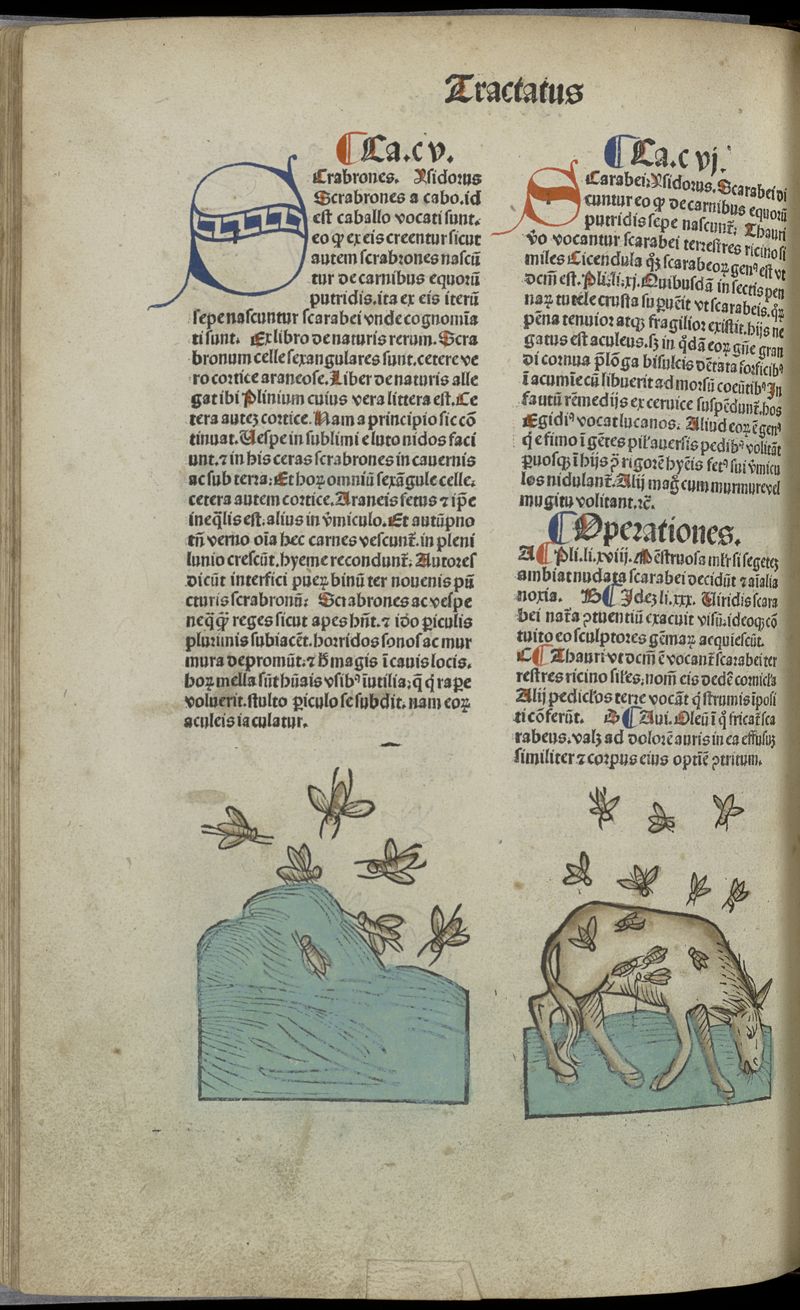 Tractatus
¶Ca.c v.
SCrabrones. Ysidorus
Scrabrones a cabo.id
est caballo vocati sunt.
eo ꝙ ex eis creentur sicut
autem scrabrones nascũ
tur de carnibus equorũ
putridis.ita ex eis iterũ
sepe nascuntur scarabei vnde cognomĩa
ti sunt. Ex libro de naturis rerum. Scra
bronum celle sexangulares sunt.cetere ve
ro cortice araneose. Liber de naturis alle
gat ibi Plinium cuius vera littera est. Ce
tera auteꝫ cortice. Nam a principio sic cõ
tinuat. Uespe in sublimi e luto nidos faci
unt.⁊ in his ceras scrabrones in cauernis
ac sub terra: Et hoꝝ omniũ sexãgule celle.
cetera autem cortice. Araneis fetus ⁊ ip̃e
ineq̃lis est. alius in v̓miculo. Et autũpno
tñ verno oĩa hec carnes vescunt̃. in pleni
lunio crescũt.hyeme recondunt̃: Autores
dicũt interfici pueꝝ binũ ter nouenis pũ
cturis scrabronũ: Scrabrones ac vespe
neq̃ꝙ̃ reges sicut apes hñt.⁊ ido p̱iculis
plurimis subiacẽt.horridos sonos ac mur
mura depromũt.⁊ h̃ magis ĩ cauis locis.
hoꝝ mella sũt hũais vsibꝰ ĩutilia; q̃ q̓ rape
voluerit.stulto p̱iculo se subdit. nam eoꝝ
aculeis iaculatur.
¶Ca.c vj.
SCarabei: Ysidorus. Scarabei di
cuntur eo ꝙ de carnibus equorũ
putridis sepe nascunt̃: Thauri
v̓o vocantur scarabei terrestres ricino si
miles Cicendula q̓ꝫ scarabeoꝝ genꝰ est vt
dcm̃ est. Pli.li.xj. Quibusdã in sectis pen
naꝝ tutele crusta sup̱uẽit vt scarabeis.q̃ꝝ
pẽna tenuior atqꝫ fragilior existit.hijs ne
gatus est aculeus.sꝫ in q̓dã eoꝝ gñe gran
di cornua p̃lõga bisulcis dẽtata forficibꝰ
ĩ acumĩe cũ libuerit ad morsũ coeũtibꝰ In
fautũ remedijs ex ceruice suspẽdunt̃.hos
Egidiꝰ vocat lucanos: Aliud eoꝝ ẽ genꝰ
q̓ e fimo ĩgẽtes pil̓ auersis pedibꝰ volũtãt
ꝑuosqꝫ ĩ hijs ꝓ rigorẽ hyẽis fetꝰ sui v̓micu
los nidulant̃. Alij mag̃ cum murmure vel
mugitu volitant.⁊c̃.
¶Operationes.
A ¶Pli.li.xviij. Mẽstruosa ml̓r si segeteꝫ
ambiat nudata scarabei decidũt ⁊ aĩalia
noxia. B ¶Ideꝫ li.xxx. Uiridis scara
bei nat̃a ꝯtuentiũ exacuit visũ.ideoqꝫ cõ
tuito eo sculptores gẽmaꝝ acquiescũt.
C ¶Thauri vt dcm̃ ẽ vocant̃ scarabei ter
restres ricino sil̓es.nom̃ eis dedẽ cornicl̓a
Alij pedicl̓os terre vocãt q̓ strumis ĩposi
ti cõferũt. D ¶Aui. Oleũ ĩ q̓ fricat̃ sca
rabeus.valꝫ ad dolorẽ auris in ea effusuꝫ
similiter ⁊ corpus eius optĩe ꝯtritum.